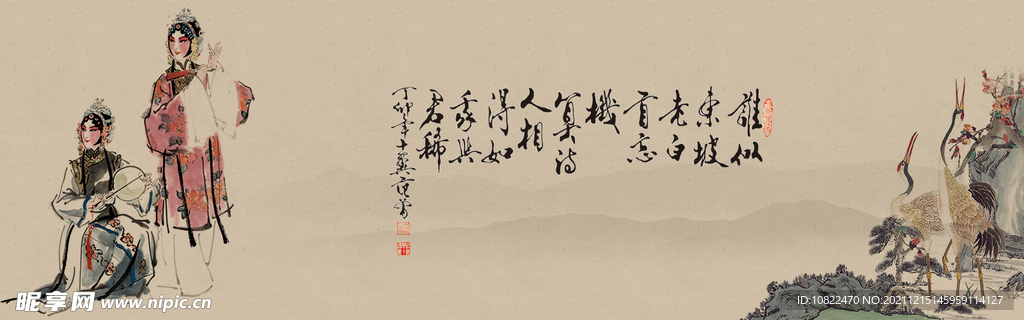 誰似
東坡
老白
首忘
機
算詩
人相
得如
我與
君稀
丁卯年十翼范曾
昵享网 www.nipic.cn
ID:10822470 NO:20211215145959114127